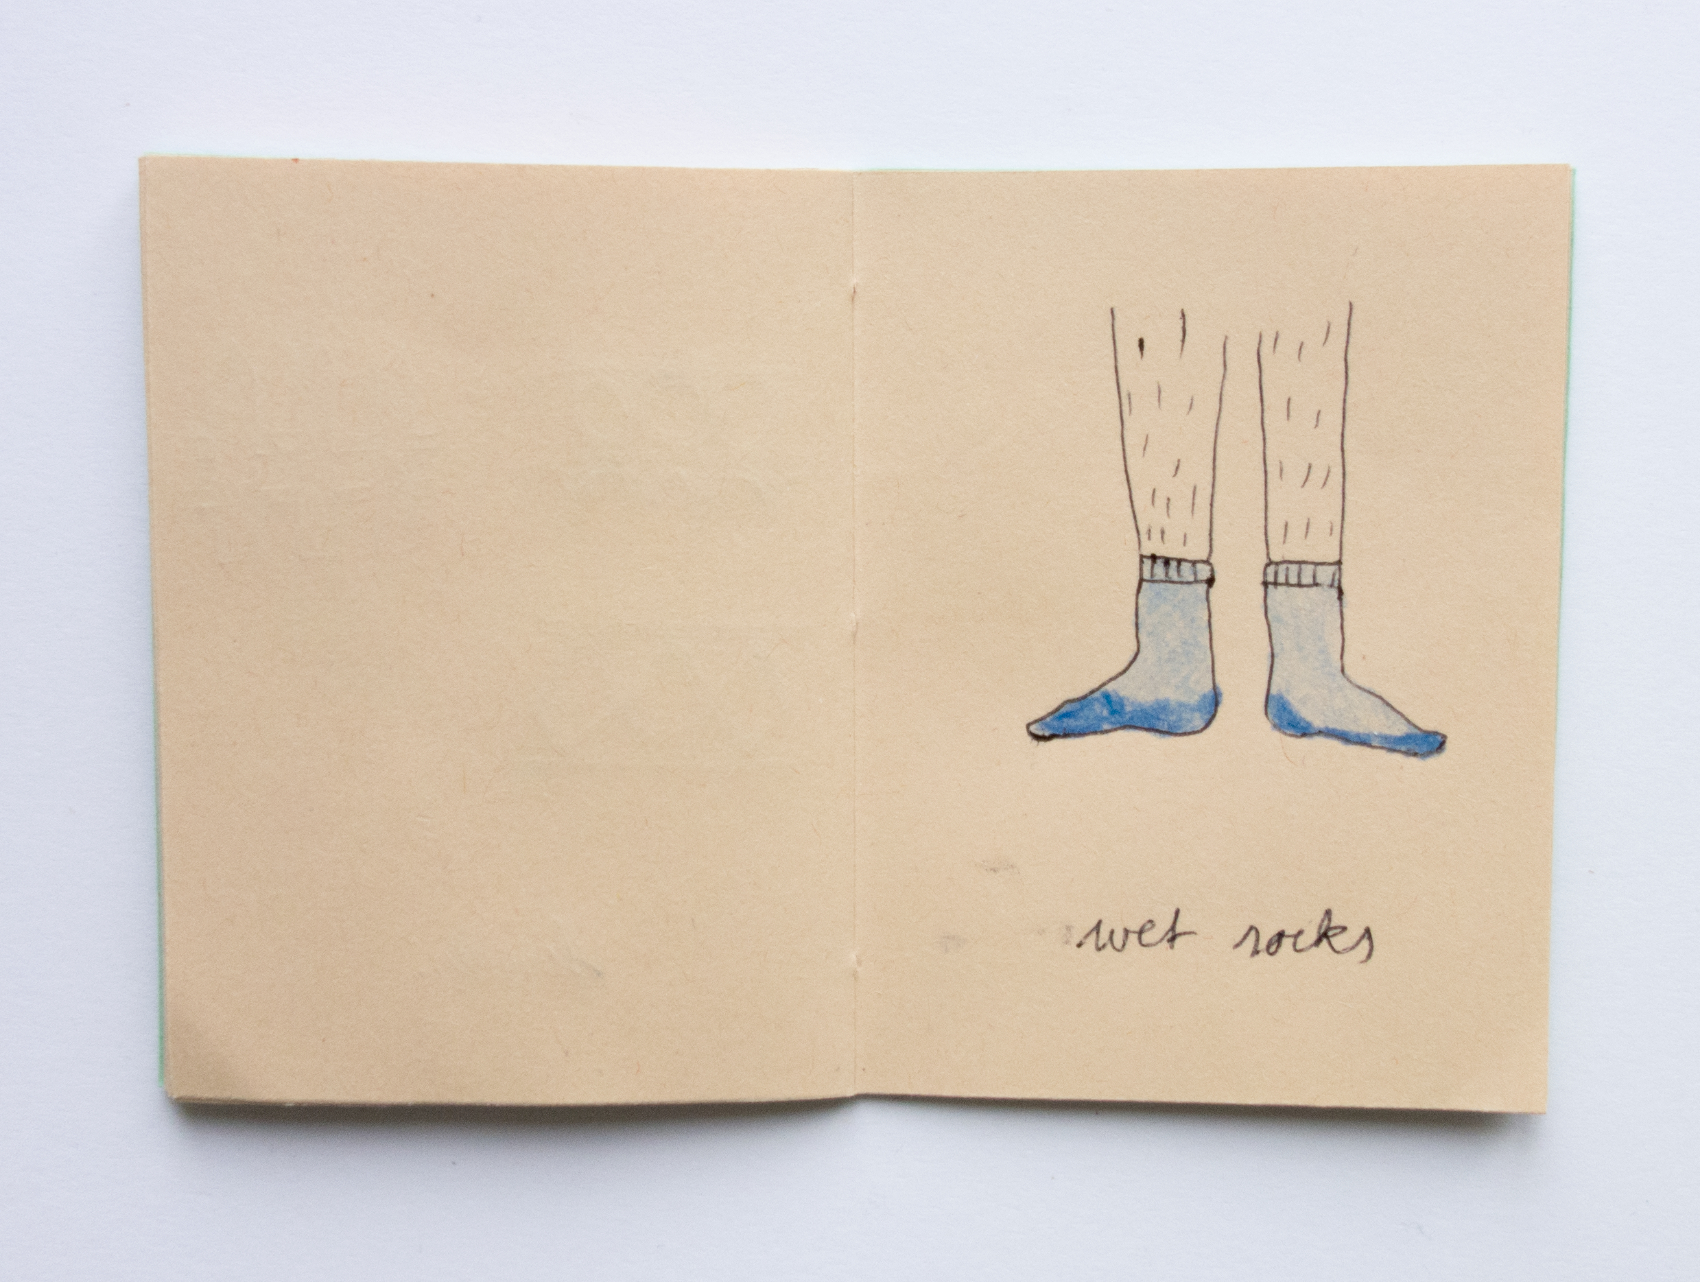 wet socks